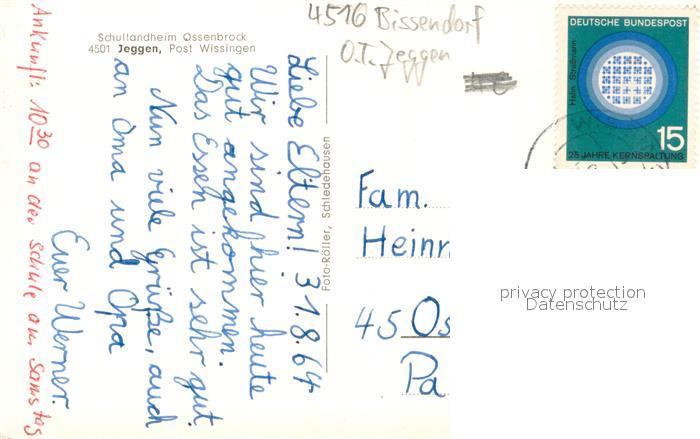 Schullandheim Ossenbrock
4501 Jeggen, Post Wissingen
4516 Bissendorf
O.T. Jeggen
DEUTSCHE BUNDESPOST
Hahn Straßmann
15
25 JAHRE KERNSPALTUNG
Liebe Eltern! 31.8.64
Wir sind hier heute
gut angekommen.
Das Essen ist sehr gut.
Nun viele Grüße, auch
an Oma und Opa
Euer Werner.
Ankunft: 10 30 an der Schule am Samstag
Foto-Röller, Schledehausen
Fam.
Heinr
45 Os
Pa
privacy protection
Datenschutz